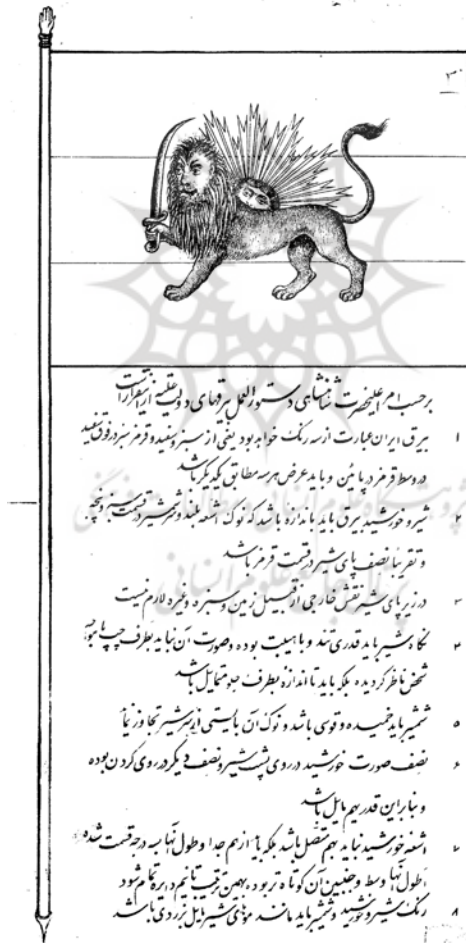 ۳۰
برحسب امر اعلیحضرت شاهنشاهی دستورالعمل بیرقهای دولت علیه از اینقرار است
۱ بیرق ایران عبارت از سه رنگ خواهد بود یعنی از سبز و سفید و قرمز سبز در فوق سفید
در وسط قرمز در پائین و باید عرض هر سه مطابق یکدیگر باشد
۲ شیر و خورشید بیرق باید باندازه باشد که نوک اشعه بلند و شمشیر در قسمت سبز و پنجه
و تقریباً نصف پای شیر در قسمت قرمز باشد
۳ در زیر پای شیر نقش خارجی از قبیل زمین و سبزه و غیره لازم نیست
۴ نگاه شیر باید قدری تند و با هیبت بوده و صورت آن نباید بطرف چپ یا
شخص ناظر گردیده بلکه باید تا اندازه بطرف جلو متمایل باشد
۵ شمشیر باید خمیده و قوی باشد و نوک آن بایستی از سر شیر تجاوز نماید
۶ نصف صورت خورشید در روی پشت شیر و نصف دیگر در روی گردن بوده
و بنابراین قدری هم مایل باشد
۷ اشعه خورشید نباید بهم متصل باشد بلکه باید از هم جدا و طول آنها به سه درجه قسمت شده
اطول آنها وسط و جنبین آن کوتاه تر بوده بهمین ترتیب تا نیم دایره تمام شود
۸ رنگ شیر و خورشید و شمشیر باید مانند موهای شیر مایل بزردی باشد
پژوهشگاه علوم انسانی و مطالعات فرهنگی
پرتال جامع علوم انسانی